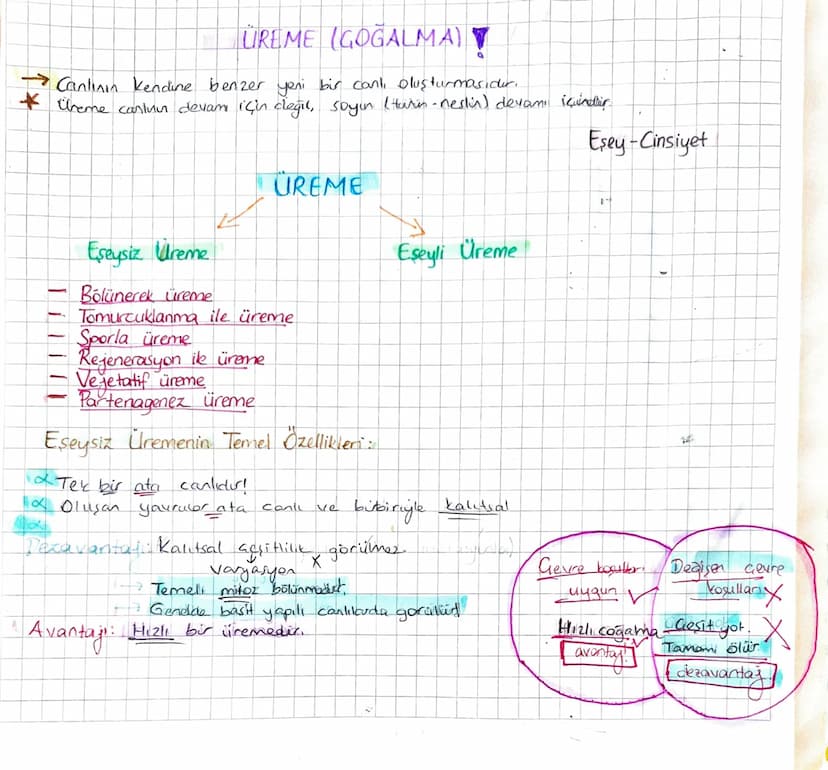 ÜREME (ÇOĞALMA) !
→ Canlının kendine benzer yeni bir canlı oluşturmasıdır.
★ Üreme canlının devamı için değil, soyun (türün-neslin) devamı içindir.
Eşey-Cinsiyet
ÜREME
Eşeysiz Üreme
Eşeyli Üreme
– Bölünerek üreme
– Tomurcuklanma ile üreme
– Sporla üreme
– Rejenerasyon ile üreme
– Vejetatif üreme
– Partenagenez üreme
Eşeysiz Üremenin Temel Özellikleri:
α Tek bir ata canlıdır!
α Oluşan yavrular ata canlı ve birbiriyle kalıtsal
α
Dezavantajı: Kalıtsal çeşitlilik görülmez.
varyasyon X
→ Temeli mitoz bölünmedir.
→ Genelde basit yapılı canlılarda görülür!
Avantajı: Hızlı bir üremedir.
Çevre koşulları
uygun ✓
Hızlı çoğalma ✓
avantaj!
Değişen çevre
koşulları X
Çeşit yok. X
Tamamı ölür.
dezavantaj